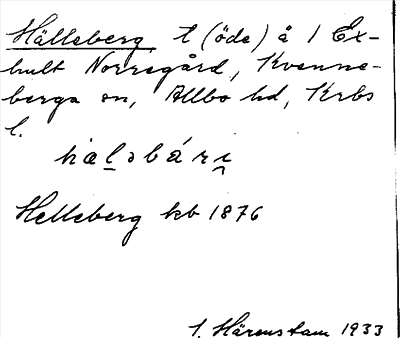 Hälleberg t (öde) å 1 Ex-
hult Norregård, Kvenne-
berga sn, Allbo hd, Krbs
l.
hælǝbárɪ̯
Helleberg kb 1876
1. Härenstam 1933